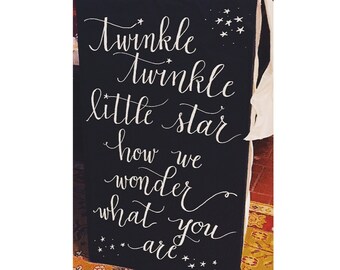 twinkle
twinkle
little star
how we
wonder
what you
are